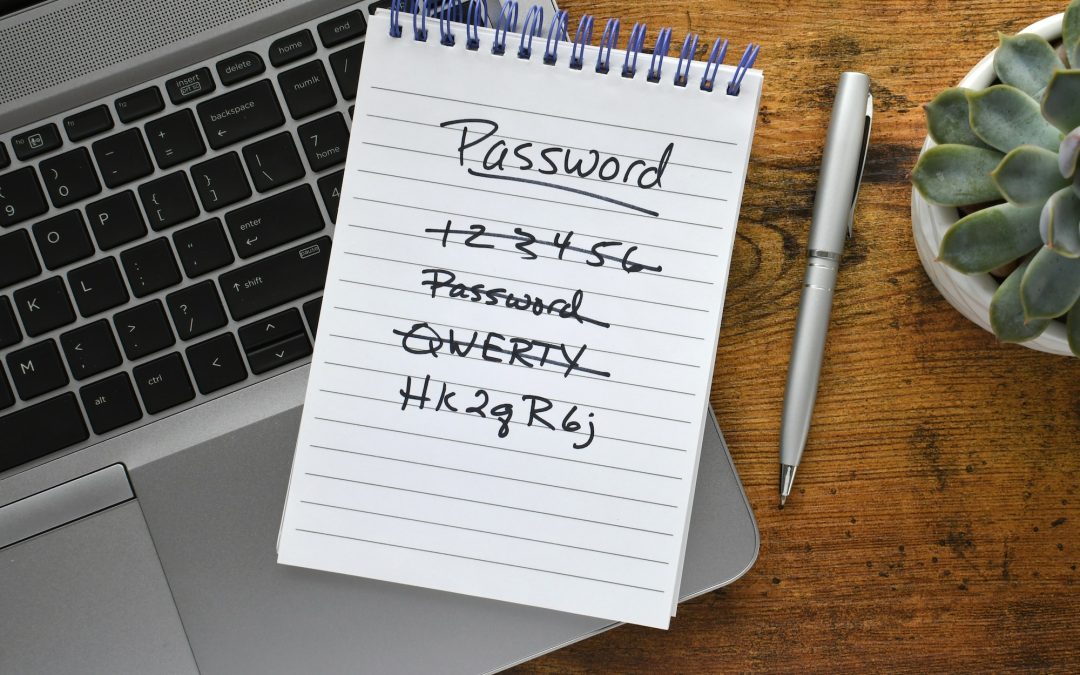 Password
123456
Password
QWERTY
Hk2qR6j
end
home
delete
insert
numlk
backspace
7
home
+
=
-
)
0
9
|
\
}
]
{
[
P
O
enter
"
'
:
;
L
K
pause
shift
?
/
>
.
<
,
M
ctrl
alt